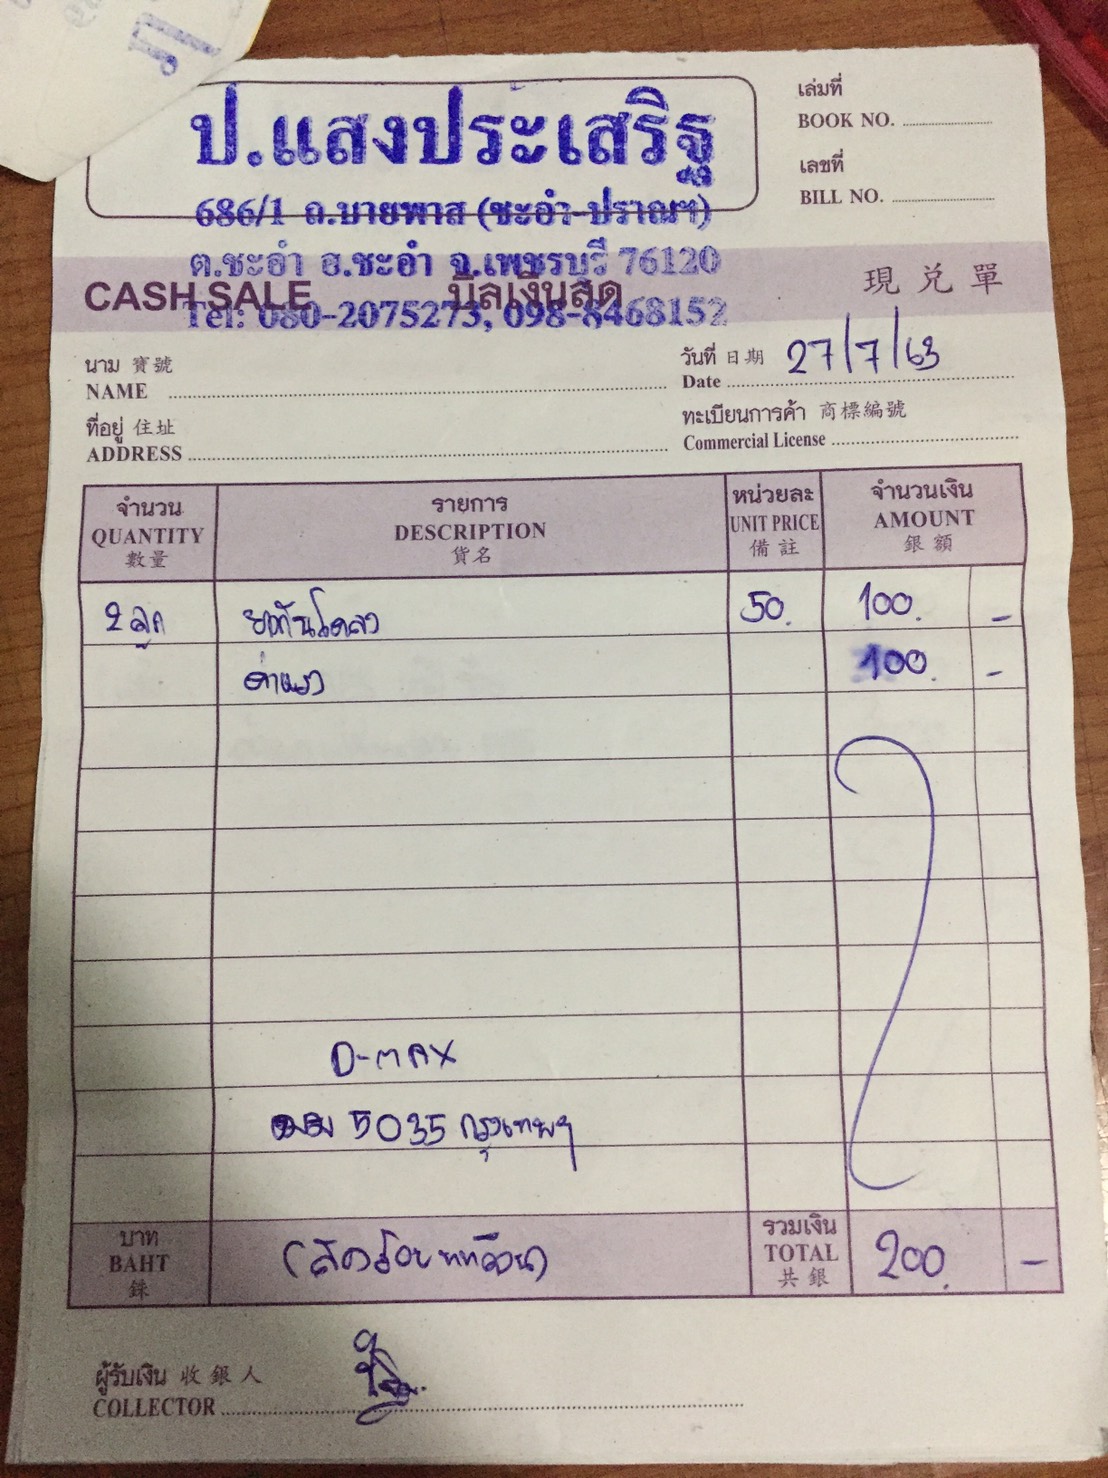 ป.แสงประเสริฐ
686/1 ถ.บายพาส (ชะอำ-ปราณฯ)
ต.ชะอำ อ.ชะอำ จ.เพชรบุรี 76120
Tel: 080-2075273, 098-8468152
เล่มที่
BOOK NO.
เลขที่
BILL NO.
CASH SALE บิลเงินสด 現兌單
นาม 寶號
NAME
วันที่ 日期 27/7/63
Date
ที่อยู่ 住址
ADDRESS
ทะเบียนการค้า 商標編號
Commercial License
จำนวน รายการ หน่วยละ จำนวนเงิน
QUANTITY DESCRIPTION UNIT PRICE AMOUNT
數量 貨名 備註 銀額
2 ลูก ยางกันโคลง 50. 100. -
ค่าแรง 100. -
D-MAX
5035 กรุงเทพฯ
บาท
BAHT
銖
(สองร้อยบาทถ้วน)
รวมเงิน
TOTAL
共銀
200. -
ผู้รับเงิน 收銀人
COLLECTOR